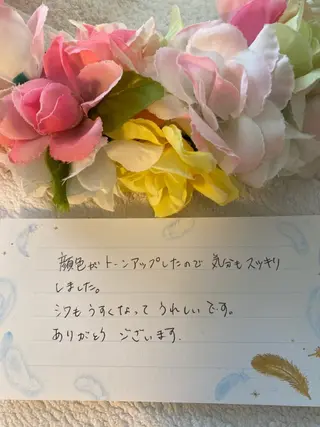 顔色がトーンアップしたので 気分もスッキリ
しました。
シワもうすくなって うれしいです。
ありがとう ございます.